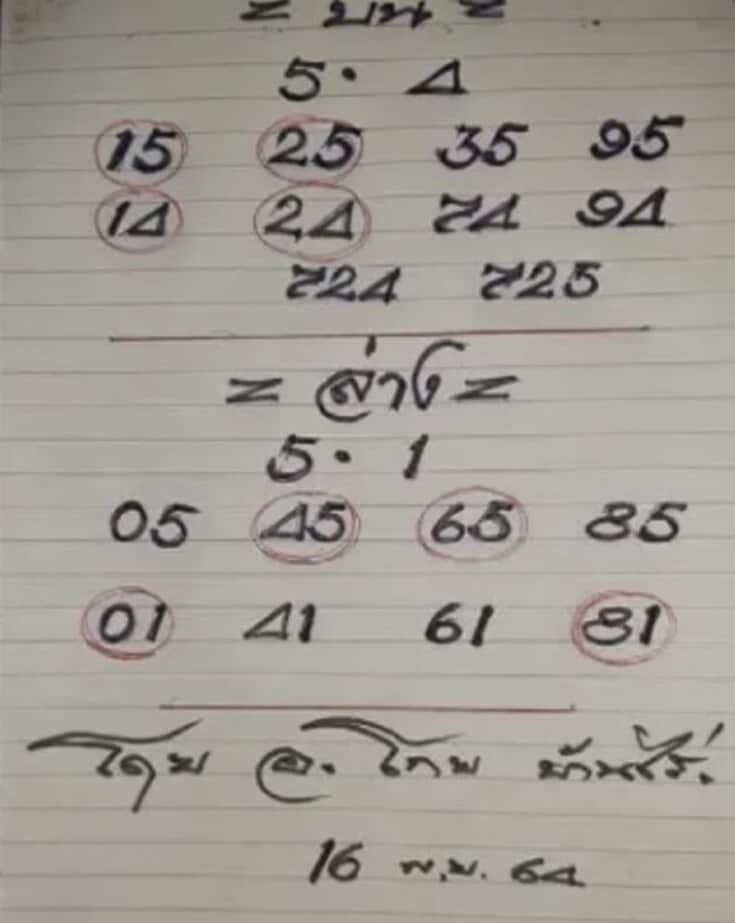 = บน =
5 · 4
15 25 35 95
14 24 74 94
724 725
= ล่าง =
5 · 1
05 45 65 85
01 41 61 81
โดย อ. โทน บ้านไร่.
16 พ.ย. 64